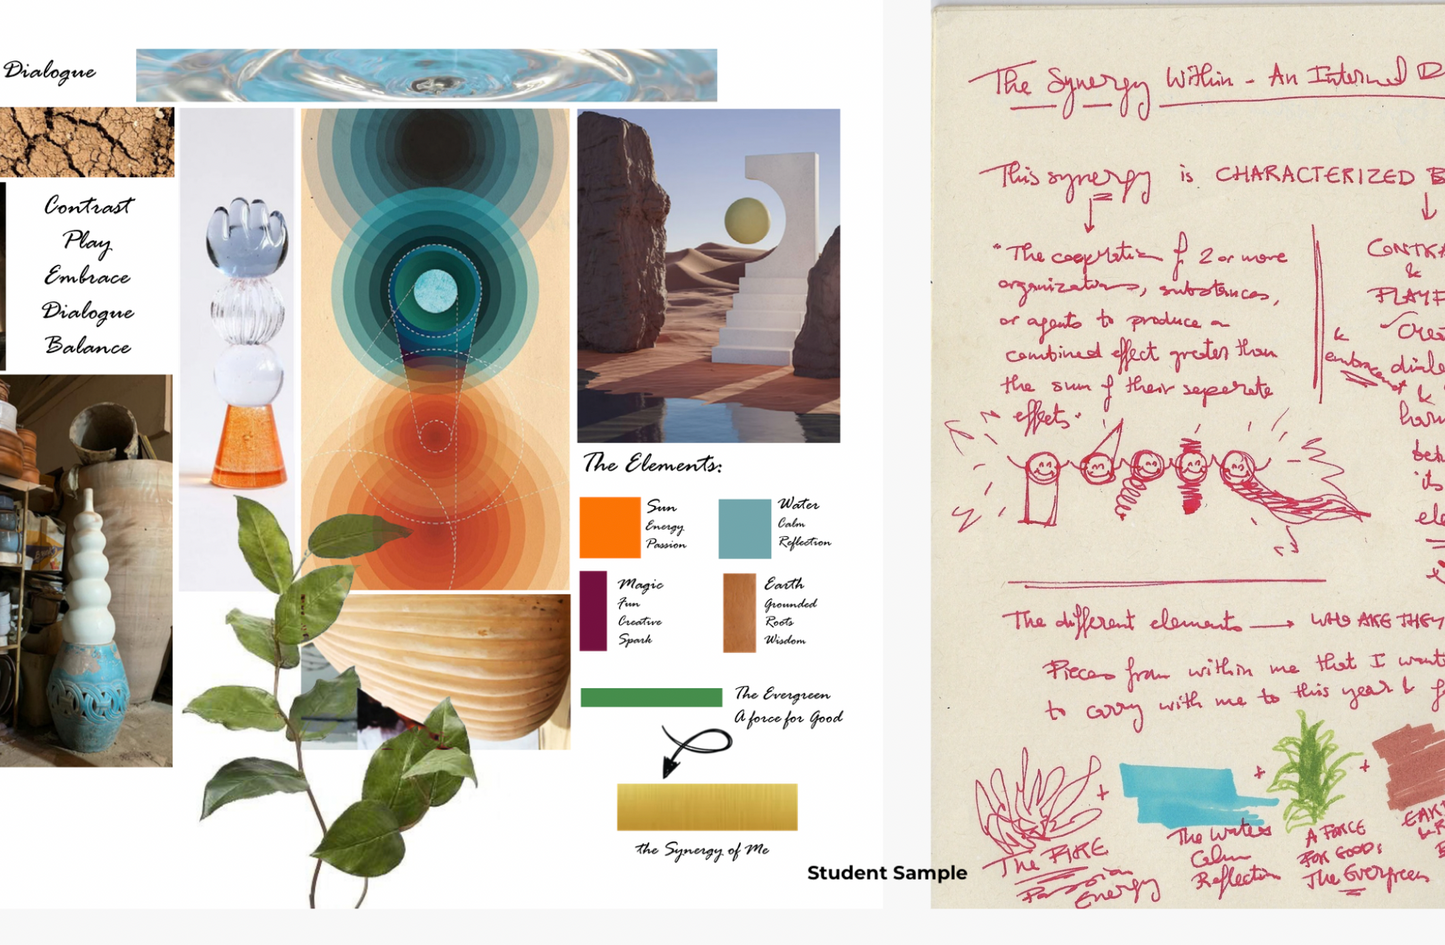 Dialogue
Contrast
Play
Embrace
Dialogue
Balance
The Elements:
Sun
Energy
Passion
Water
Calm
Reflection
Magic
Fun
Creative
Spark
Earth
Grounded
Roots
Wisdom
The Evergreen
A force for Good
the Synergy of Me
Student Sample
The Synergy Within - An Internal D
This synergy is CHARACTERIZED B
"The cooperation of 2 or more
organizations, substances,
or agents to produce a
combined effect greater than
the sum of their seperate
effects"
CONTRA
&
PLAYF
Crea
dial
&
embrace
harm
betw
its
ele
The different elements → WHO ARE THEY
Pieces from within me that I want
to carry with me to this year &
The FIRE
Passion
Energy
+
The Waters
Calm
Reflection
+
A FORCE
FOR GOOD:
The Evergreen
+
EART